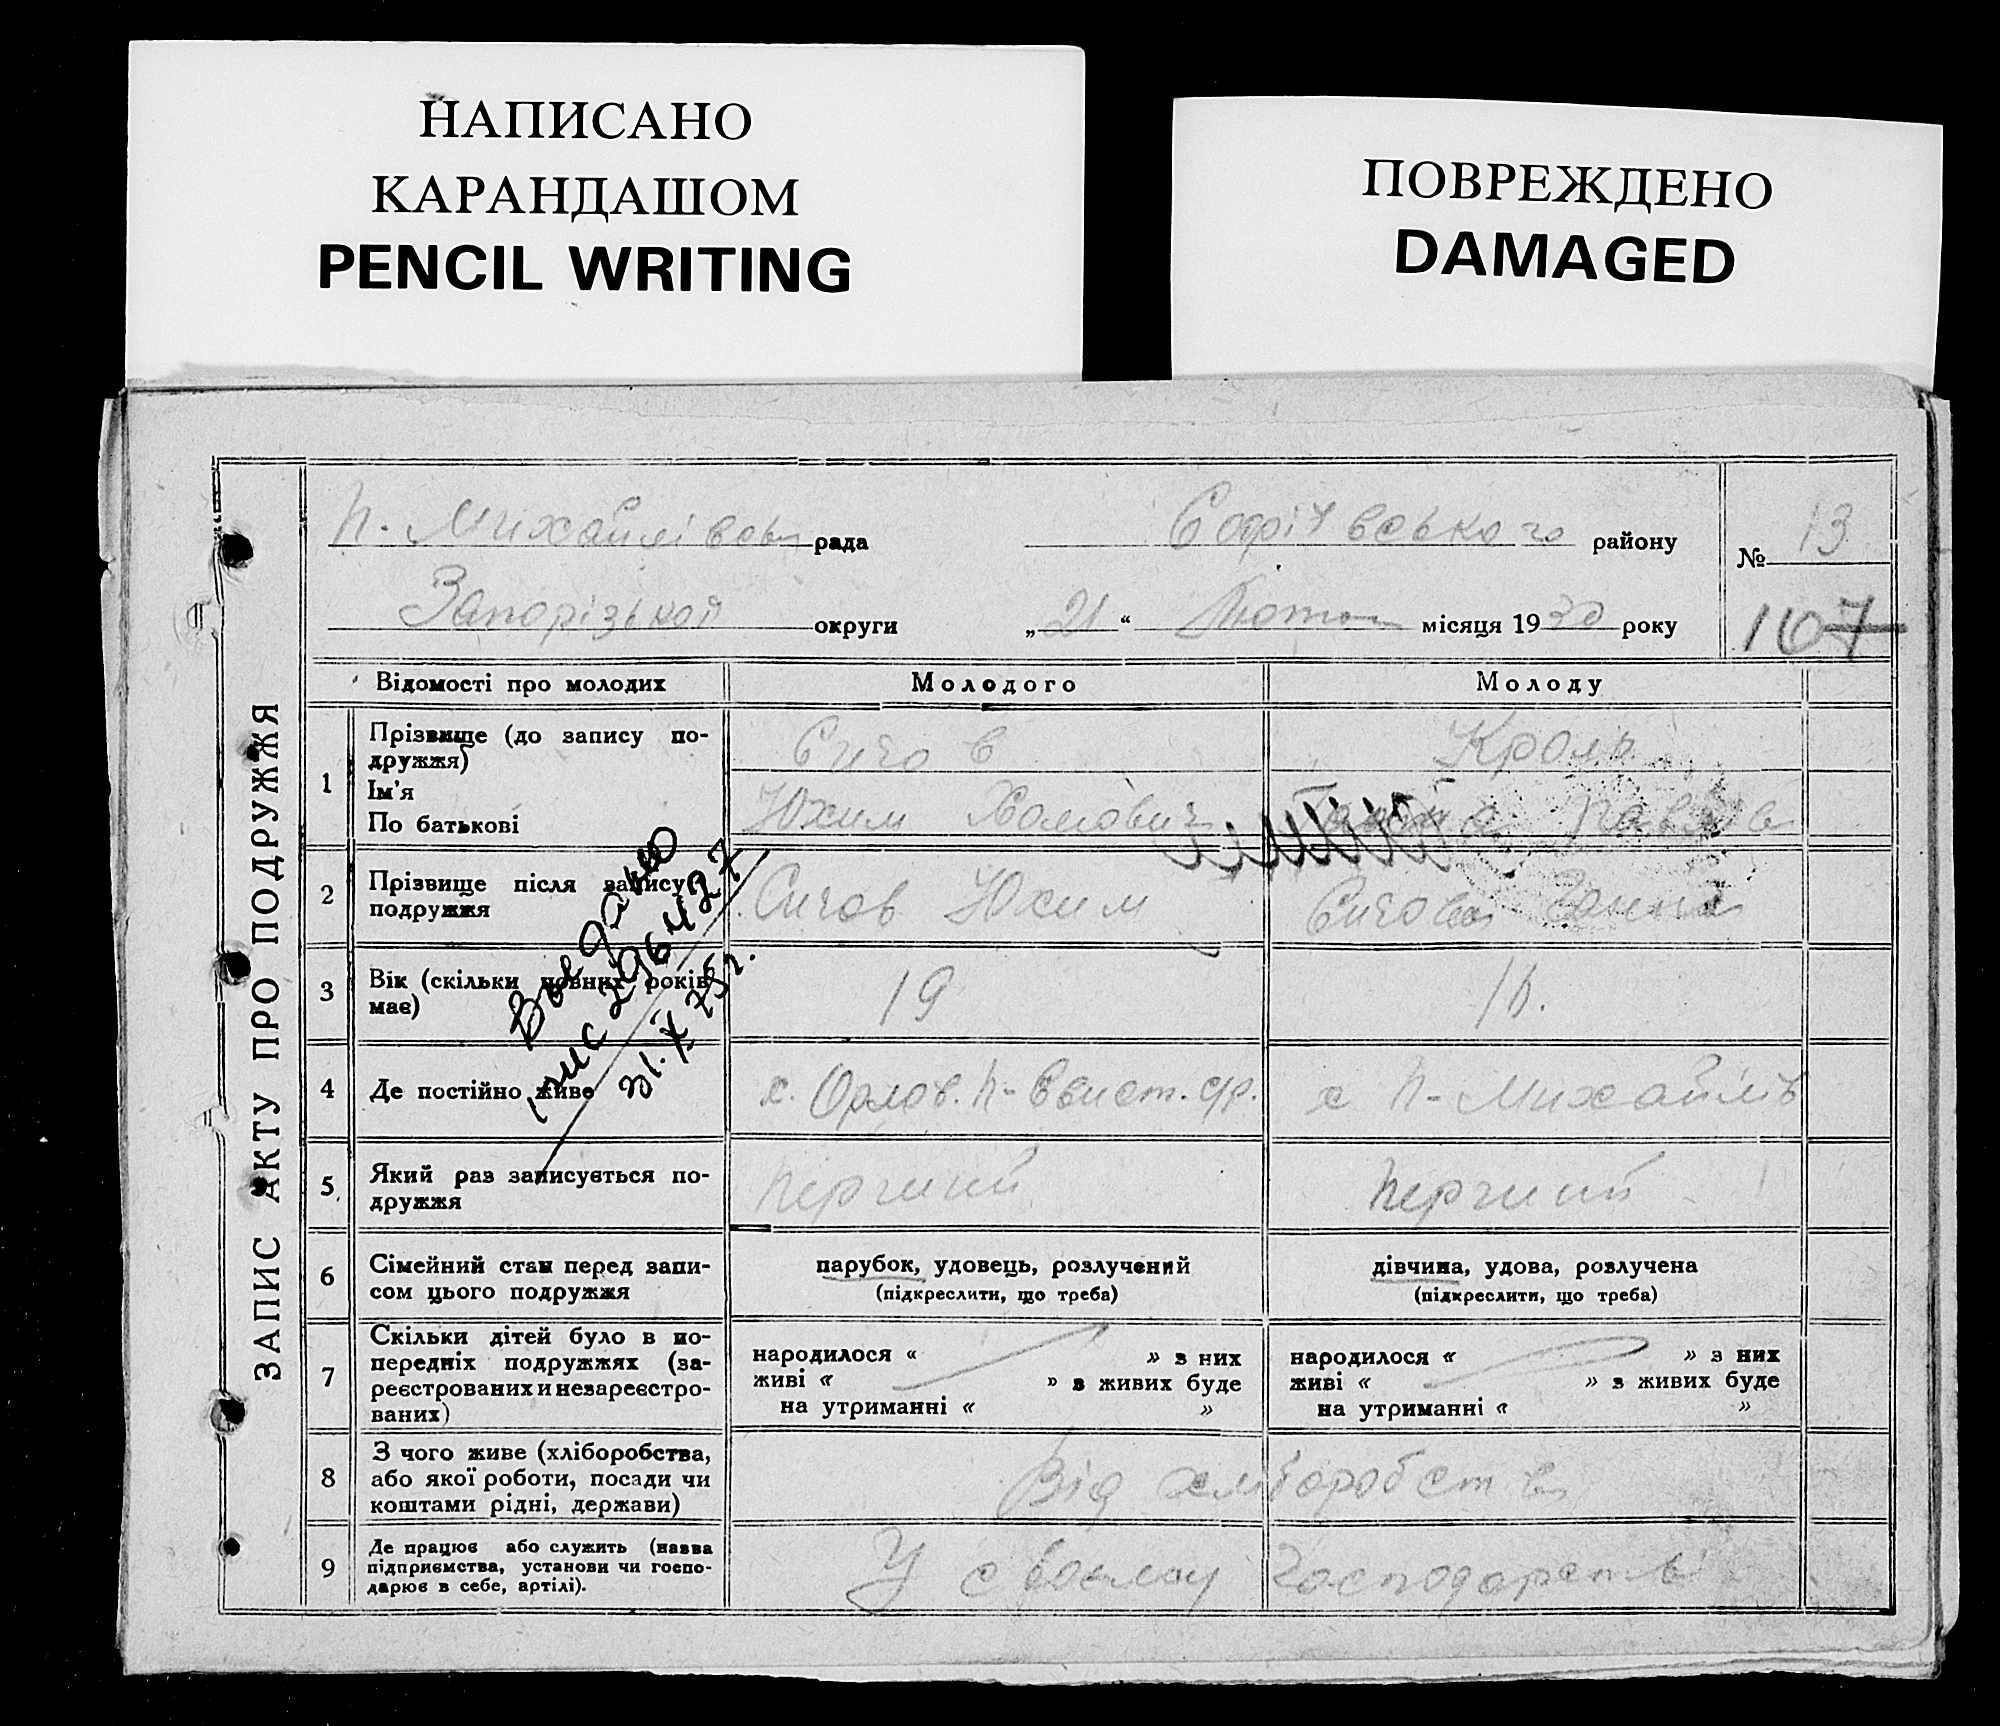 НАПИСАНО
КАРАНДАШОМ
PENCIL WRITING
ПОВРЕЖДЕНО
DAMAGED
ЗАПИС АКТУ ПРО ПОДРУЖЖЯ
П-Михайлівськ рада Софіївського району № 13
Запорізької округи „21“ Лютого місяця 1930 року 107
Відомості про молодих Молодого Молоду
1 Прізвище (до запису по-
дружжя) Сичов Кроль
Ім'я
По батькові Юхим Хомович Павлів
2 Прізвище після запису
подружжя Сичов Юхим Сичова Ганна
3 Вік (скільки повних років
має) 19
4 Де постійно живе х. Орлов. с/р. с П-Михайлів
5 Який раз записується по-
дружжя Перший Перший
6 Сімейний стан перед запи-
сом цього подружжя
парубок, удовець, розлучений
(підкреслити, що треба)
дівчина, удова, розлучена
(підкреслити, що треба)
7 Скільки дітей було в по-
передніх подружжях (за-
реєстрованих и незареєстро-
ваних)
народилося « » з них
живі « » з живих буде
на утриманні « »
народилося « » з них
живі « » з живих буде
на утриманні « »
8 З чого живе (хліборобства,
або якої роботи, посади чи
коштами рідні, держави) Від хліборобства
9 Де працює або служить (назва
підприємства, установи чи госпо-
дарює в себе, артілі). У своєму господарстві
296427
31.X 75г.